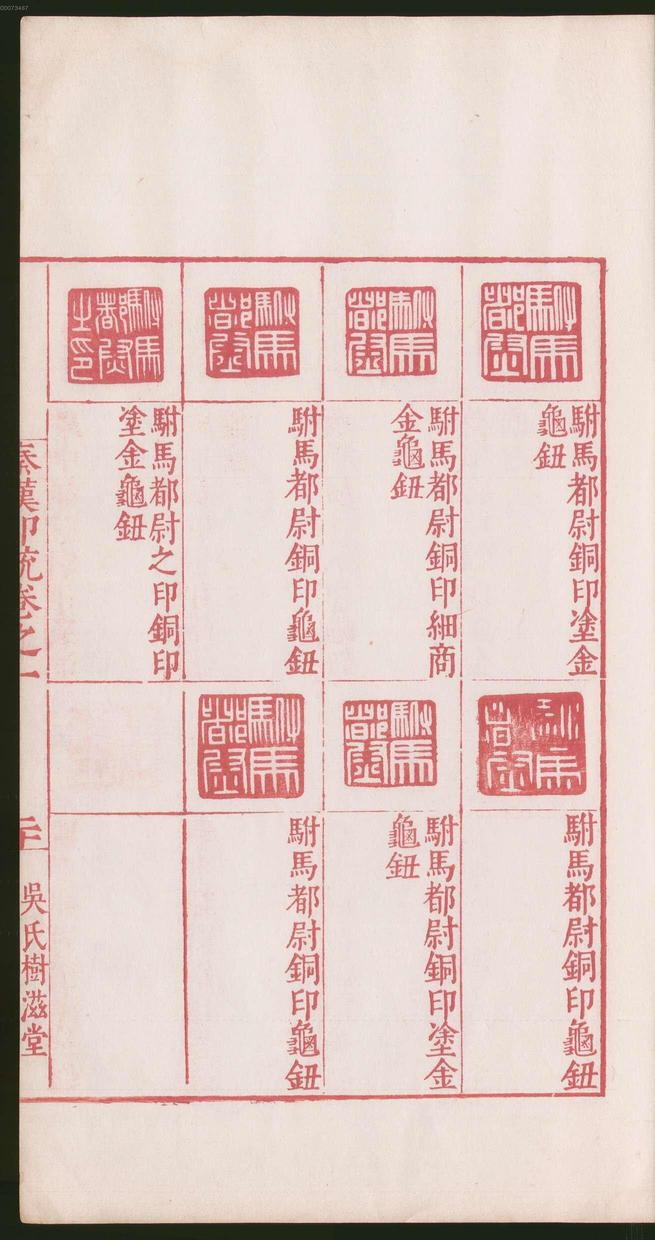 00073467
駙馬都尉
駙馬都尉銅印塗金
龜鈕
駙馬都尉
駙馬都尉銅印細商
金龜鈕
駙馬都尉
駙馬都尉銅印龜鈕
駙馬都尉之印
駙馬都尉之印銅印
塗金龜鈕
駙馬都尉
駙馬都尉銅印龜鈕
駙馬都尉
駙馬都尉銅印塗金
龜鈕
駙馬都尉
駙馬都尉銅印龜鈕
秦漢印統卷之一
二十
吳氏樹滋堂